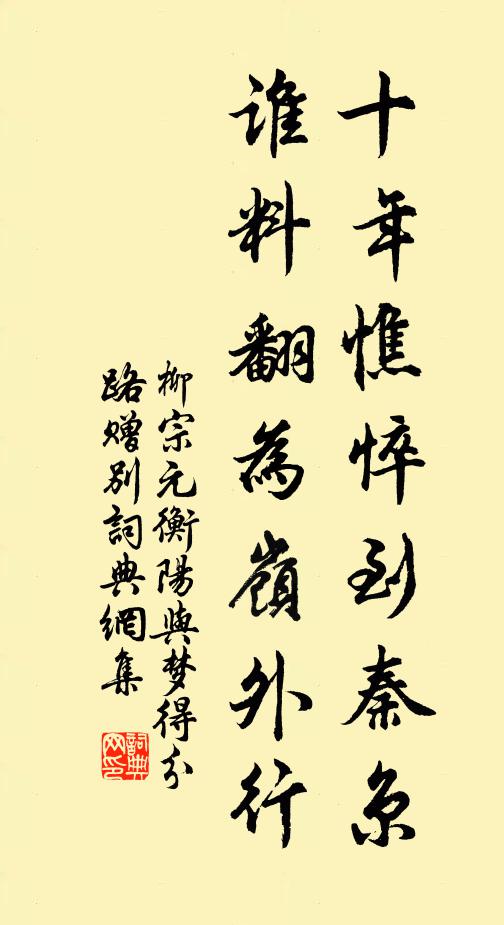 十年憔悴到秦京
谁料翻為嶺外行
柳宗元衡陽與梦得分
路赠别詞典網集
詞典网印